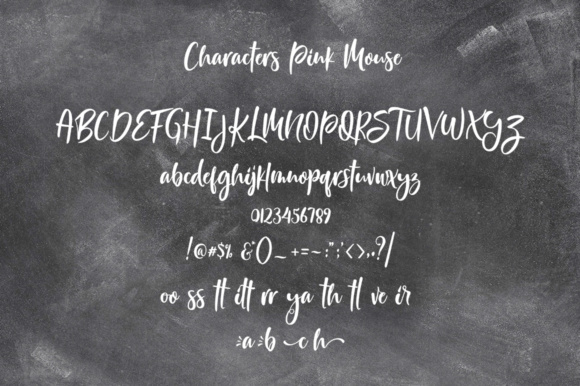 Characters Pink Mouse
ABCDEFGHIJKLMNOPQRSTUVWXYZ
abcdefghijklmnopqrstuvwxyz
0123456789
!@#$% &()_-+=~:";'<>,.?/
oo ss tt itt rr ya th tl ve ir
a b c h